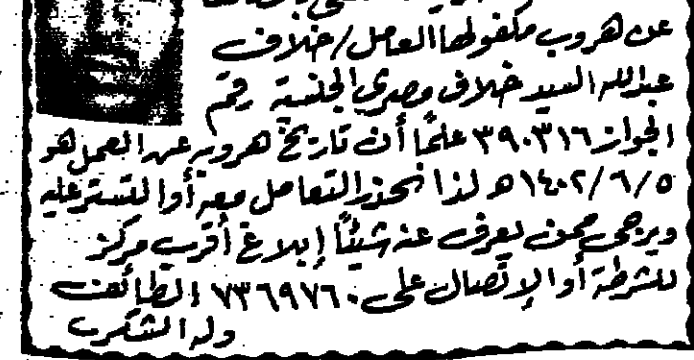 عن هروب مكفولها العامل/خلاف
عبدالله السيد خلاف مصري الجنسية رقم
الجواز ٣٩٠٣١٦ علمًا أن تاريخ هروبه عن العمل هو
١٤٠٢/٦/٥ هـ لذا نحذر التعامل معه أو التستر عليه
ويرجى ممن يعرف عنه شيئًا إبلاغ أقرب مركز
للشرطة أو الإتصال على ٧٣٦٩٧٦٠ الطائف
وله الشكر